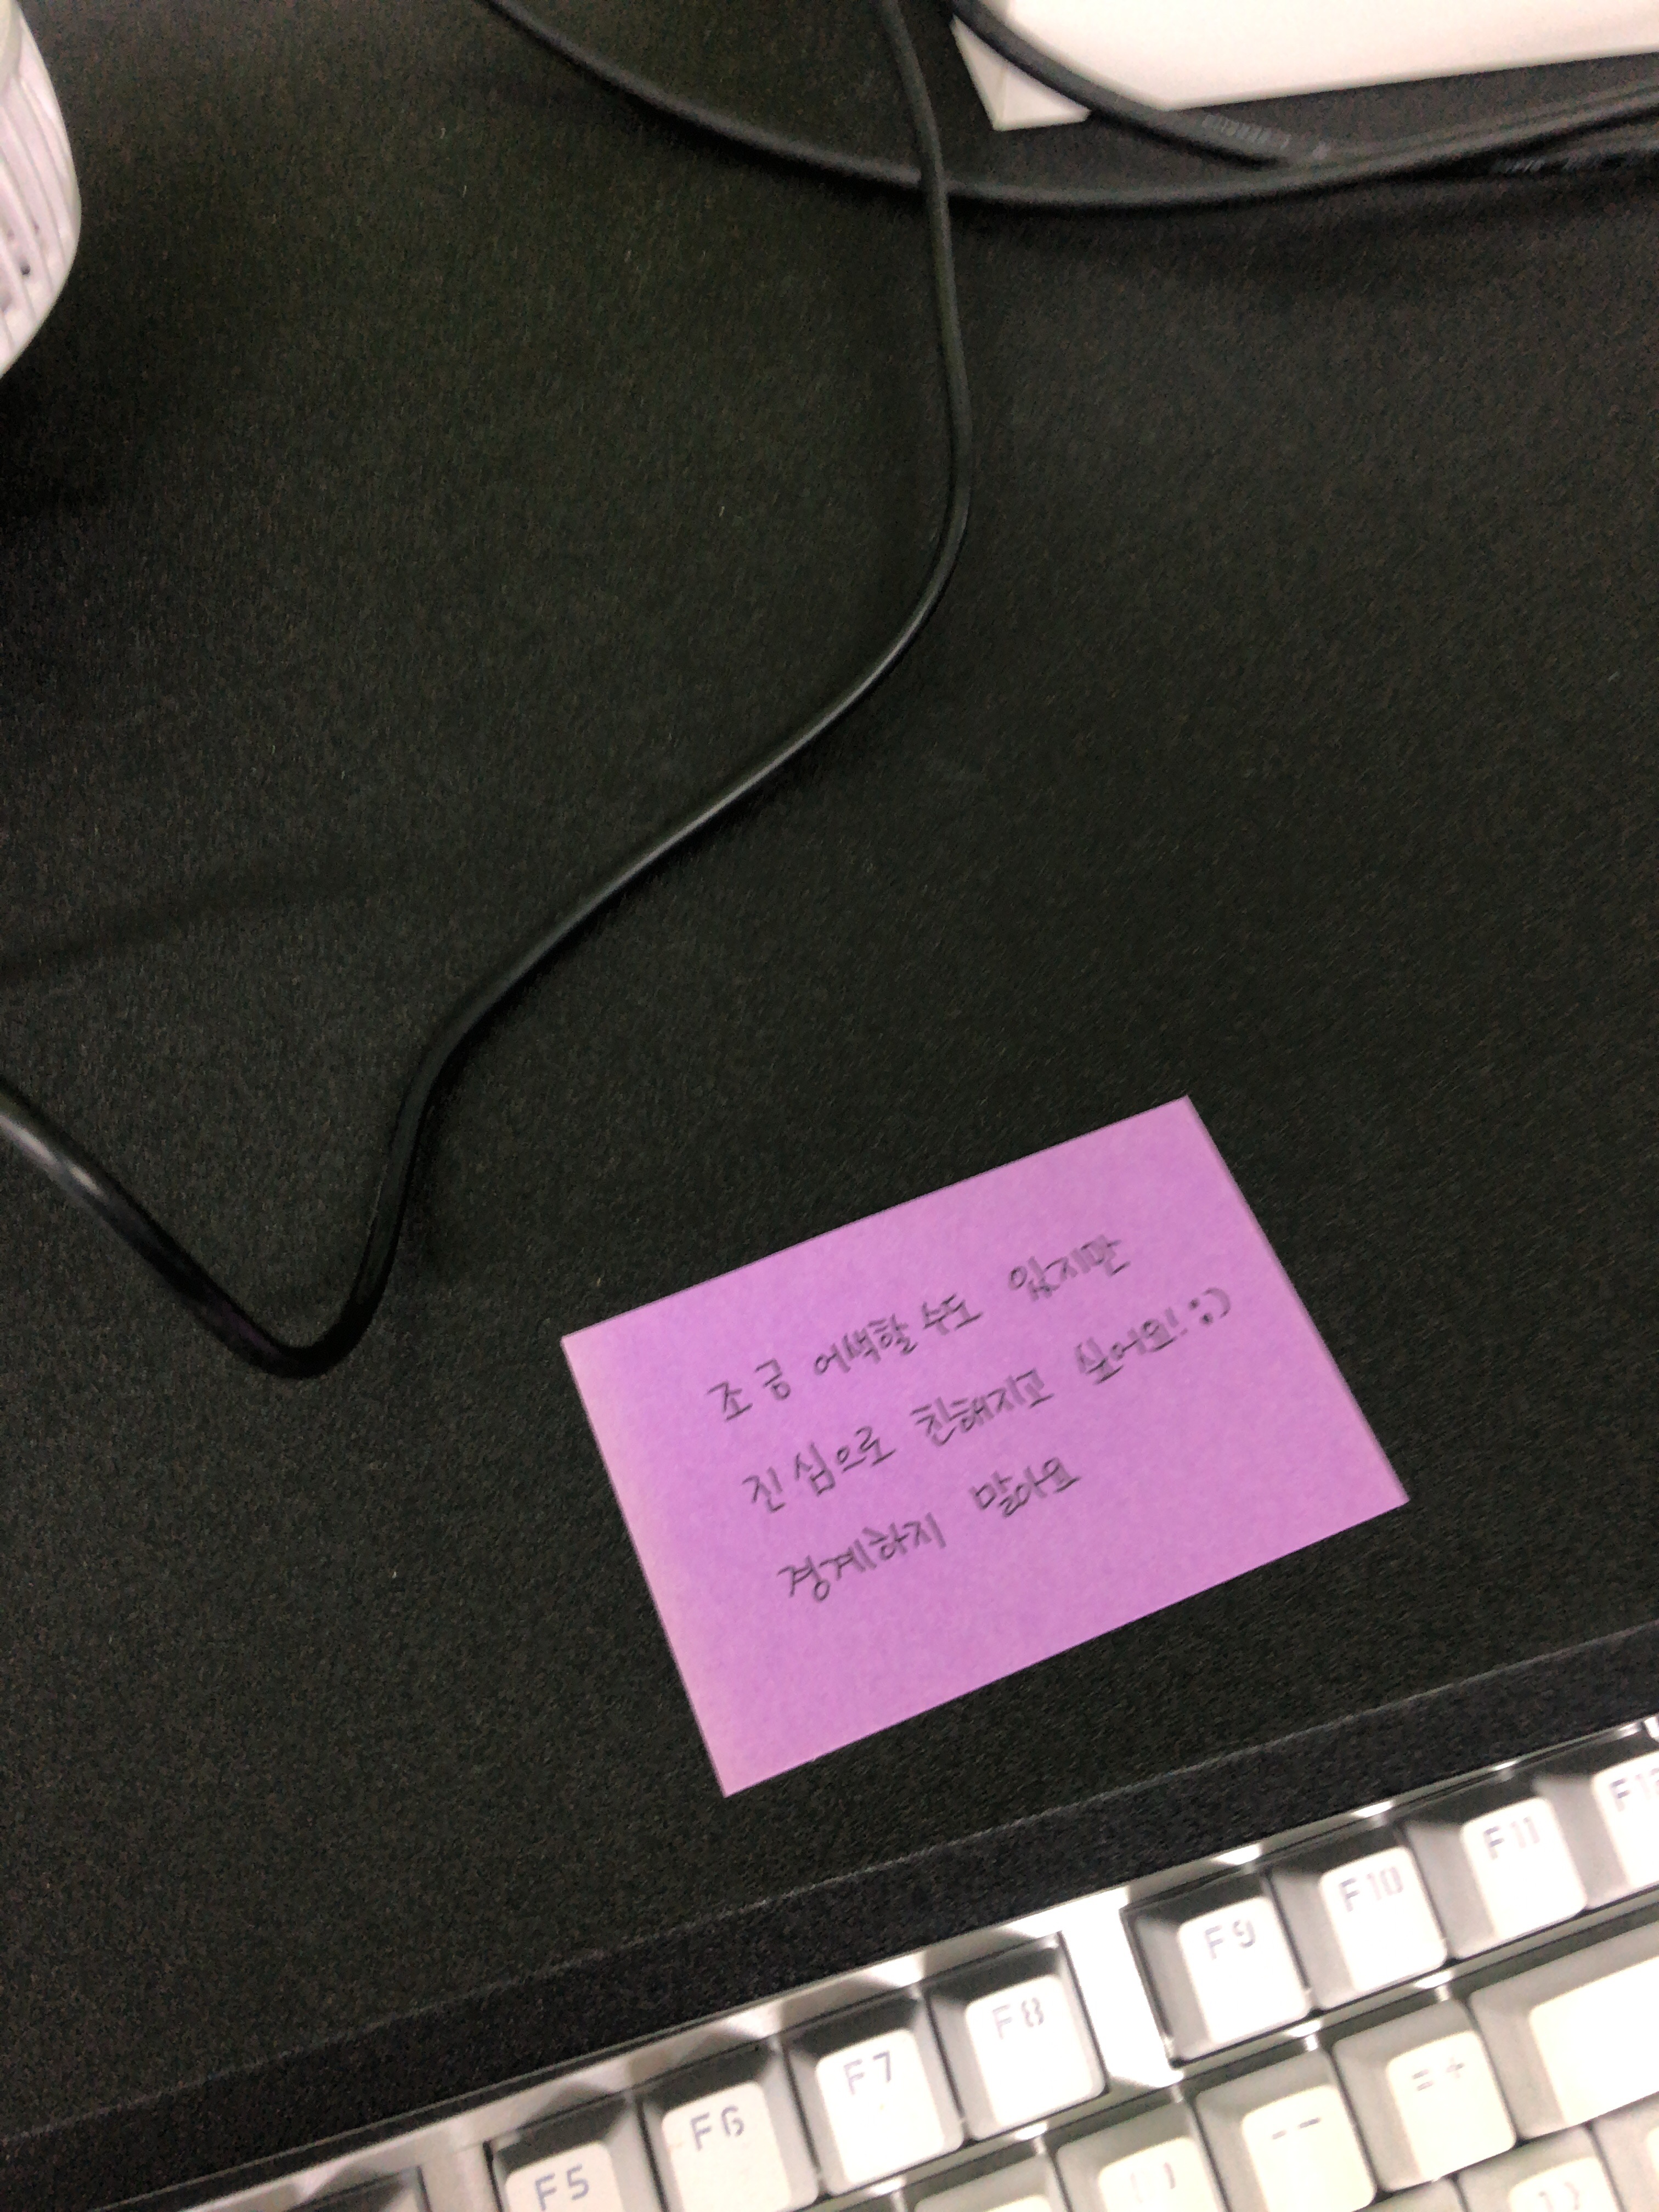 조금 어색할 수도 있지만
진심으로 친해지고 싶어
경계하지 말아
F5
F6
F7
F8
F9
F10
F11
F12